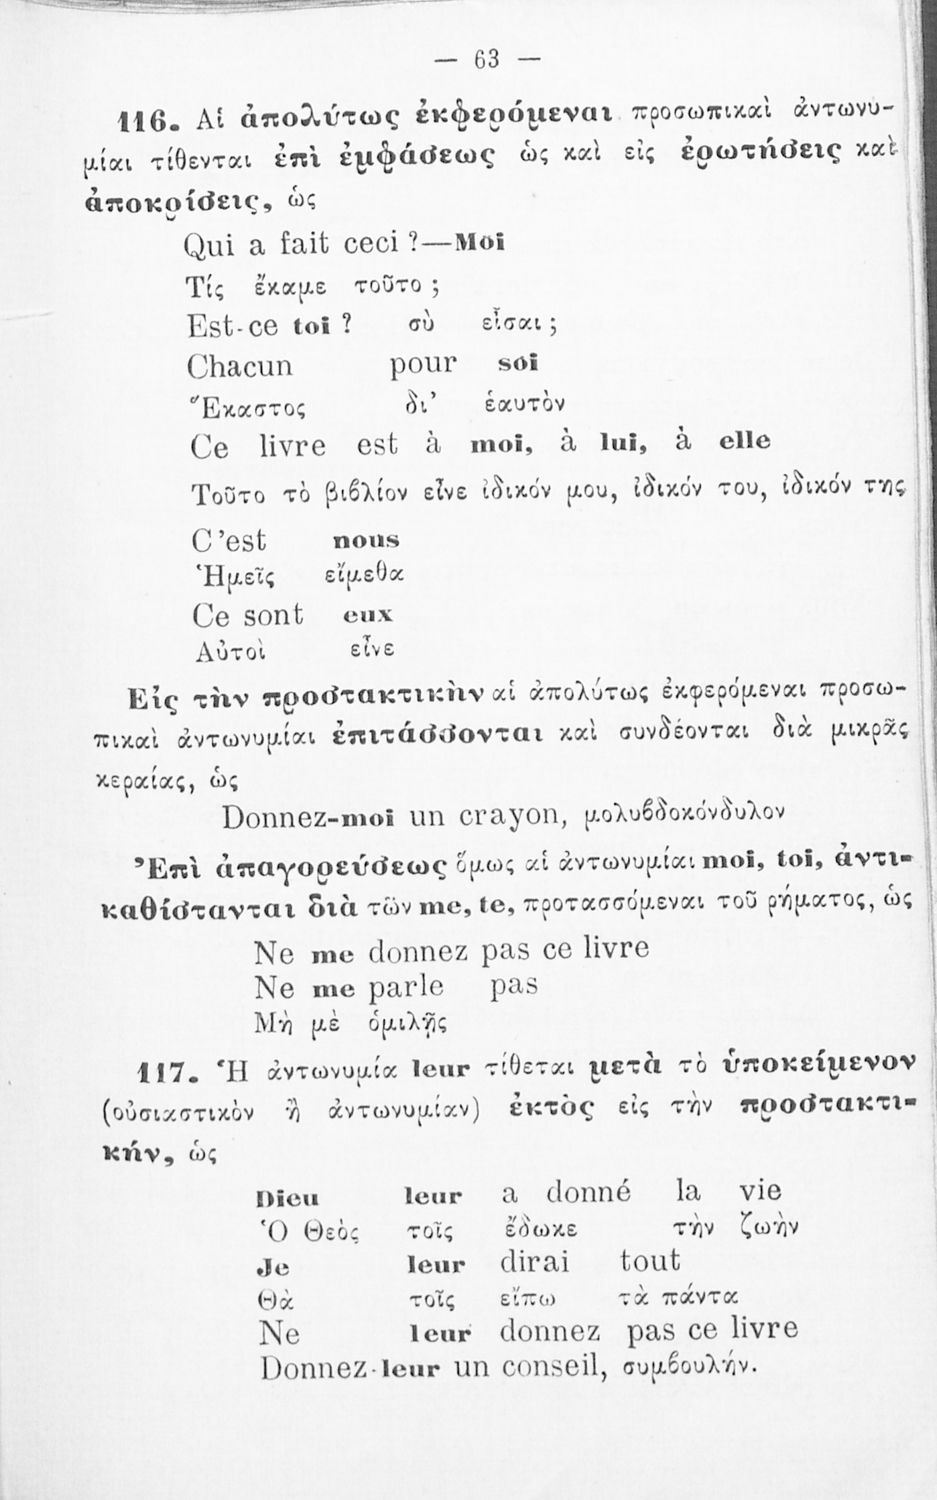 — 63 —
116. Αἱ ἀπολύτως ἐκφερόμεναι προσωπικαὶ ἀντωνυ-
μίαι τίθενται ἐπὶ ἐμφάσεως ὡς καὶ εἰς ἐρωτήσεις καὶ
ἀποκρίσεις, ὡς
Qui a fait ceci ?—Moi
Τίς ἔκαμε τοῦτο ;
Est-ce toi ? σὺ εἶσαι ;
Chacun pour soi
Ἕκαστος δι’ ἑαυτὸν
Ce livre est à moi, à lui, à elle
Τοῦτο τὸ βιβλίον εἶνε ἰδικόν μου, ἰδικόν του, ἰδικόν της
C’est nous
Ἡμεῖς εἴμεθα
Ce sont eux
Αὐτοὶ εἶνε
Εἰς τὴν προστακτικὴν αἱ ἀπολύτως ἐκφερόμεναι προσω-
πικαὶ ἀντωνυμίαι ἐπιτάσσονται καὶ συνδέονται διὰ μικρᾶς
κεραίας, ὡς
Donnez-moi un crayon, μολυβδοκόνδυλον
Ἐπὶ ἀπαγορεύσεως ὅμως αἱ ἀντωνυμίαι moi, toi, ἀντι-
καθίστανται διὰ τῶν me, te, προτασσόμεναι τοῦ ρήματος, ὡς
Ne me donnez pas ce livre
Ne me parle pas
Μὴ μὲ ὁμιλῇς
117. Ἡ ἀντωνυμία leur τίθεται μετὰ τὸ ὑποκείμενον
(οὐσιαστικὸν ἢ ἀντωνυμίαν) ἐκτὸς εἰς τὴν προστακτι-
κήν, ὡς
Dieu leur a donné la vie
Ὁ Θεὸς τοῖς ἔδωκε τὴν ζωὴν
Je leur dirai tout
Θὰ τοῖς εἴπω τὰ πάντα
Ne leur donnez pas ce livre
Donnez-leur un conseil, συμβουλήν.